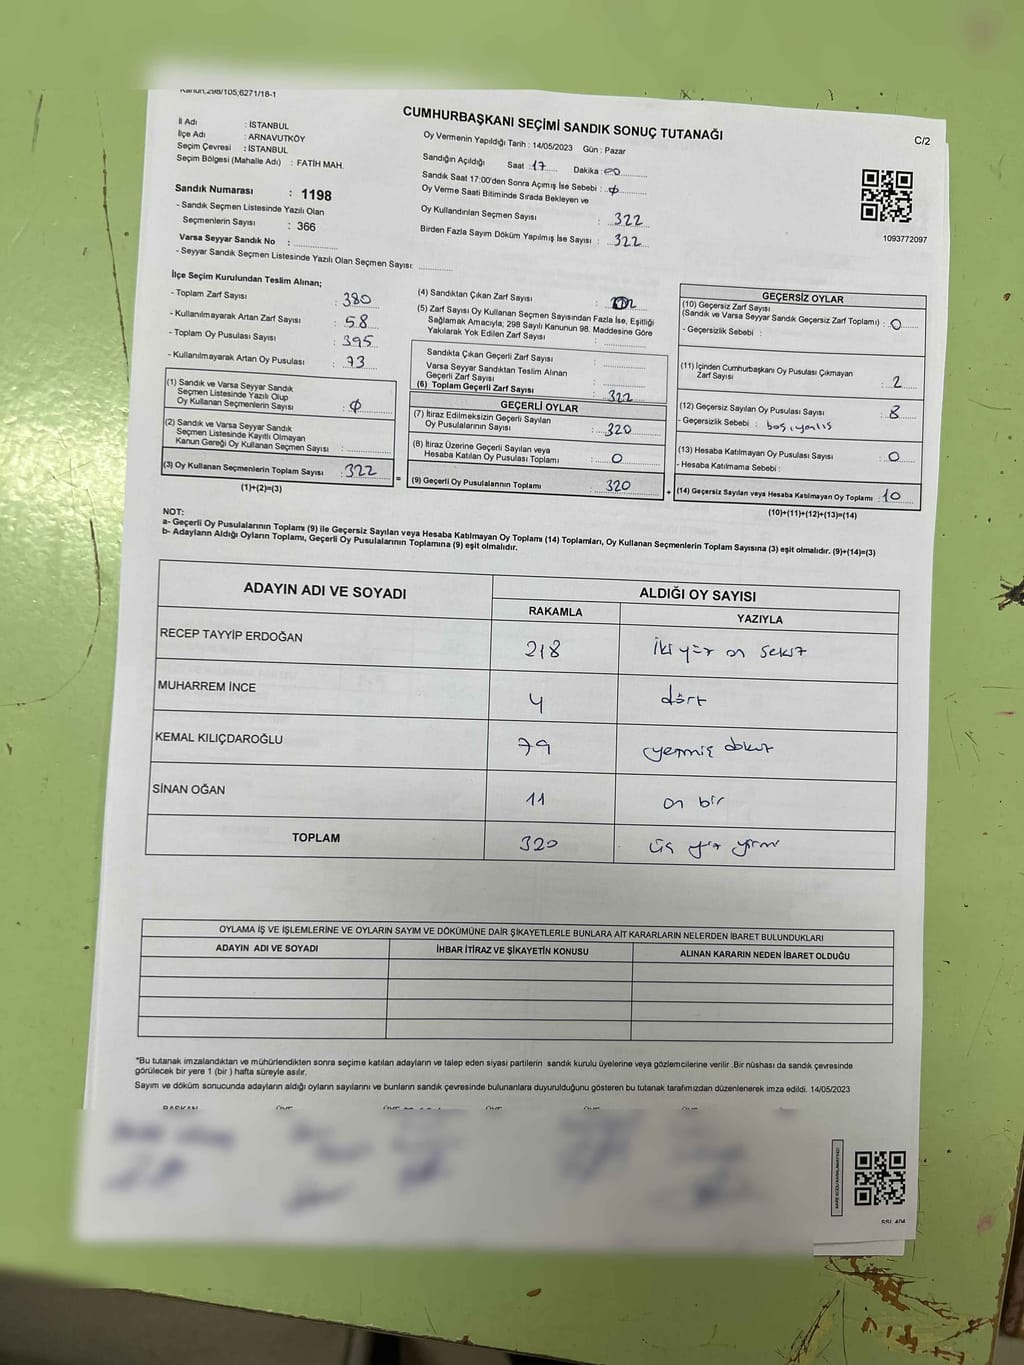 Kanun,298/105,6271/18-1
CUMHURBAŞKANI SEÇİMİ SANDIK SONUÇ TUTANAĞI
C/2
İl Adı : İSTANBUL
İlçe Adı : ARNAVUTKÖY
Seçim Çevresi : İSTANBUL
Seçim Bölgesi (Mahalle Adı) : FATİH MAH.
Oy Vermenin Yapıldığı Tarih : 14/05/2023 Gün : Pazar
Sandığın Açıldığı Saat : 17 Dakika : 00
Sandık Saat 17:00'den Sonra Açımış İse Sebebi : Ø
Oy Verme Saati Bitiminde Sırada Bekleyen ve
Oy Kullandırılan Seçmen Sayısı : 322
Birden Fazla Sayım Döküm Yapılmış İse Sayısı : 322
1093772097
Sandık Numarası : 1198
- Sandık Seçmen Listesinde Yazılı Olan
Seçmenlerin Sayısı : 366
Varsa Seyyar Sandık No :
- Seyyar Sandık Seçmen Listesinde Yazılı Olan Seçmen Sayısı:
İlçe Seçim Kurulundan Teslim Alınan;
- Toplam Zarf Sayısı : 380
- Kullanılmayarak Artan Zarf Sayısı : 58
- Toplam Oy Pusulası Sayısı : 395
- Kullanılmayarak Artan Oy Pusulası : 73
(1) Sandık ve Varsa Seyyar Sandık
Seçmen Listesinde Yazılı Olup
Oy Kullanan Seçmenlerin Sayısı : Ø
(2) Sandık ve Varsa Seyyar Sandık
Seçmen Listesinde Kayıtlı Olmayan
Kanun Gereği Oy Kullanan Seçmen Sayısı :
(3) Oy Kullanan Seçmenlerin Toplam Sayısı : 322
(1)+(2)=(3)
(4) Sandıktan Çıkan Zarf Sayısı :
(5) Zarf Sayısı Oy Kullanan Seçmen Sayısından Fazla İse, Eşitliği
Sağlamak Amacıyla; 298 Sayılı Kanunun 98. Maddesine Göre
Yakılarak Yok Edilen Zarf Sayısı :
Sandıkta Çıkan Geçerli Zarf Sayısı :
Varsa Seyyar Sandıktan Teslim Alınan
Geçerli Zarf Sayısı :
(6) Toplam Geçerli Zarf Sayısı : 322
=
GEÇERLİ OYLAR
(7) İtiraz Edilmeksizin Geçerli Sayılan
Oy Pusulalarının Sayısı : 320
(8) İtiraz Üzerine Geçerli Sayılan veya
Hesaba Katılan Oy Pusulası Toplamı : 0
(9) Geçerli Oy Pusulalarının Toplamı : 320
+
GEÇERSİZ OYLAR
(10) Geçersiz Zarf Sayısı
(Sandık ve Varsa Seyyar Sandık Geçersiz Zarf Toplamı) : 0
- Geçersizlik Sebebi :
(11) İçinden Cumhurbaşkanı Oy Pusulası Çıkmayan
Zarf Sayısı : 2
(12) Geçersiz Sayılan Oy Pusulası Sayısı : 8
- Geçersizlik Sebebi : boş, yanlış
(13) Hesaba Katılmayan Oy Pusulası Sayısı : 0
- Hesaba Katılmama Sebebi :
(14) Geçersiz Sayılan veya Hesaba Katılmayan Oy Toplamı : 10
(10)+(11)+(12)+(13)=(14)
NOT:
a- Geçerli Oy Pusulalarının Toplamı (9) ile Geçersiz Sayılan veya Hesaba Katılmayan Oy Toplamı (14) Toplamları, Oy Kullanan Seçmenlerin Toplam Sayısına (3) eşit olmalıdır. (9)+(14)=(3)
b- Adayların Aldığı Oyların Toplamı, Geçerli Oy Pusulalarının Toplamına (9) eşit olmalıdır.
ADAYIN ADI VE SOYADI
ALDIĞI OY SAYISI
RAKAMLA YAZIYLA
RECEP TAYYİP ERDOĞAN 218 iki yüz on sekiz
MUHARREM İNCE 4 dört
KEMAL KILIÇDAROĞLU 79 yetmiş dokuz
SİNAN OĞAN 11 on bir
TOPLAM 320 üç yüz yirmi
OYLAMA İŞ VE İŞLEMLERİNE VE OYLARIN SAYIM VE DÖKÜMÜNE DAİR ŞİKAYETLERLE BUNLARA AİT KARARLARIN NELERDEN İBARET BULUNDUKLARI
ADAYIN ADI VE SOYADI İHBAR İTİRAZ VE ŞİKAYETİN KONUSU ALINAN KARARIN NEDEN İBARET OLDUĞU
*Bu tutanak imzalandıktan ve mühürlendikten sonra seçime katılan adayların ve talep eden siyasi partilerin sandık kurulu üyelerine veya gözlemcilerine verilir .Bir nüshası da sandık çevresinde
görülecek bir yere 1 (bir ) hafta süreyle asılır.
Sayım ve döküm sonucunda adayların aldığı oyların sayılarını ve bunların sandık çevresinde bulunanlara duyurulduğunu gösteren bu tutanak tarafımızdan düzenlenerek imza edildi. 14/05/2023
BAŞKAN ÜYE ÜYE ÜYE ÜYE ÜYE ÜYE